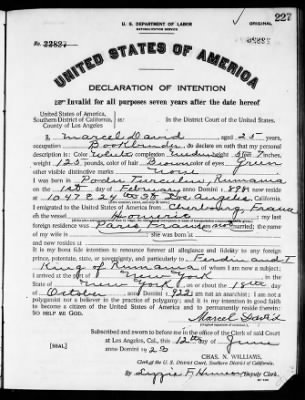 227
U. S. DEPARTMENT OF LABOR
NATURALIZATION SERVICE
ORIGINAL
No. 22827
UNITED STATES OF AMERICA
DECLARATION OF INTENTION
Invalid for all purposes seven years after the date hereof
United States of America,
Southern District of California, ss:
County of Los Angeles
In the District Court of the United States.
I, Marcel David, aged 25 years,
occupation Bookbinder, do declare on oath that my personal
description is: Color White, complexion Medium, height 5 feet 7 inches,
weight 125 pounds, color of hair Brown, color of eyes Green
other visible distinctive marks None
I was born in Rumania
on the 1st day of February, anno Domini 1898; I now reside
at 1047 E 24th St Los Angeles, California
I emigrated to the United States of America from Cherbourg, France
on the vessel Homeric; my last
foreign residence was Paris, France; I am not married; the name
of my wife is
she was born at
and now resides at
It is my bona fide intention to renounce forever all allegiance and fidelity to any foreign
prince, potentate, state, or sovereignty, and particularly to Ferdinand I
King of Rumania, of whom I am now a subject;
I arrived at the port of New York, in the
State of New York, on or about the 18th day
of October, anno Domini 1922; I am not an anarchist; I am not a
polygamist nor a believer in the practice of polygamy; and it is my intention in good faith
to become a citizen of the United States of America and to permanently reside therein:
SO HELP ME GOD.
Marcel David
Subscribed and sworn to before me in the office of the Clerk of said Court
at Los Angeles, Cal., this 12th day of June
anno Domini 1923
[SEAL]
CHAS. N. WILLIAMS,
Clerk of the U. S. District Court, Southern District of California.
By Deputy Clerk.